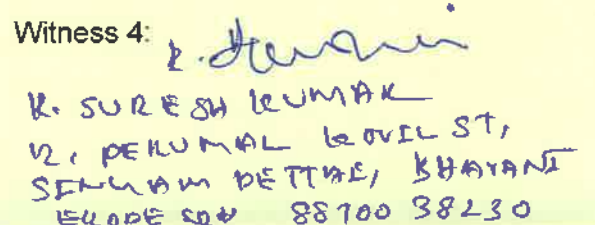 Witness 4:
K. SURESH KUMAR
12, PERUMAL KOVIL ST,
SINGAM PETTAI, BHAVANI
ERODE 88700 38230